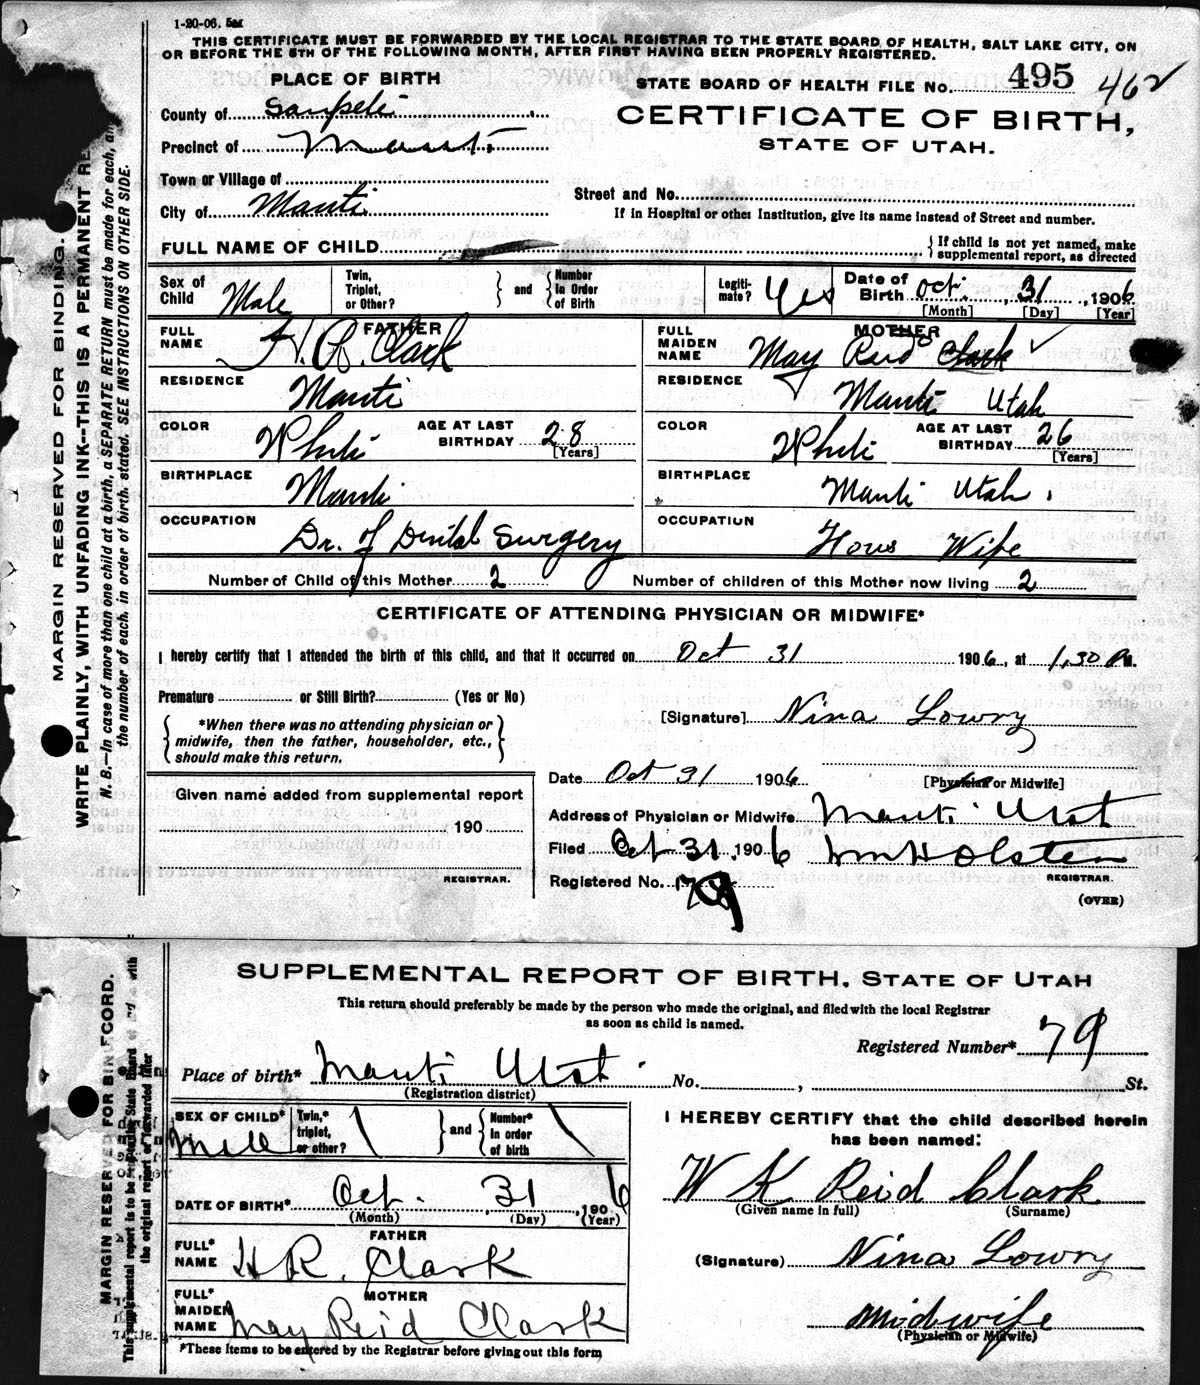 1-20-06.
THIS CERTIFICATE MUST BE FORWARDED BY THE LOCAL REGISTRAR TO THE STATE BOARD OF HEALTH, SALT LAKE CITY, ON
OR BEFORE THE 5TH OF THE FOLLOWING MONTH, AFTER FIRST HAVING BEEN PROPERLY REGISTERED.
PLACE OF BIRTH
STATE BOARD OF HEALTH FILE No. 495 462
County of Sanpete
CERTIFICATE OF BIRTH,
STATE OF UTAH.
Precinct of Manti
Town or Village of
Street and No.
City of Manti
If in Hospital or other Institution, give its name instead of Street and number.
FULL NAME OF CHILD
{ If child is not yet named, make
supplemental report, as directed
Sex of Child Male
Twin, Triplet, or Other? } and { Number in Order of Birth
Legiti-mate? Yes
Date of Birth Oct. 31, 1906
[Month] [Day] [Year]
FATHER
FULL NAME H. R. Clark
RESIDENCE Manti
COLOR White AGE AT LAST BIRTHDAY 28 [Years]
BIRTHPLACE Manti
OCCUPATION Dr. of Dental Surgery
MOTHER
FULL MAIDEN NAME May Reid Clark ✓
RESIDENCE Manti Utah
COLOR White AGE AT LAST BIRTHDAY 26 [Years]
BIRTHPLACE Manti Utah.
OCCUPATION Hous Wife
Number of Child of this Mother 2 Number of children of this Mother now living 2
CERTIFICATE OF ATTENDING PHYSICIAN OR MIDWIFE*
I hereby certify that I attended the birth of this child, and that it occurred on Oct 31 1906, at 1,30 M.
Premature or Still Birth? (Yes or No)
{ *When there was no attending physician or
midwife, then the father, householder, etc.,
should make this return. }
[Signature] Nina Lowry
[Physician or Midwife]
Date Oct 31 1906
Given name added from supplemental report
190
REGISTRAR.
Address of Physician or Midwife Manti Utah
Filed Oct 31. 1906 Wm H Olsten
REGISTRAR.
Registered No. 79
(OVER)
MARGIN RESERVED FOR BINDING.
WRITE PLAINLY, WITH UNFADING INK—THIS IS A PERMANENT RE
N. B.—In case of more than one child at a birth, a SEPARATE RETURN must be made for each, an
the number of each, in order of birth, stated. SEE INSTRUCTIONS ON OTHER SIDE.
SUPPLEMENTAL REPORT OF BIRTH, STATE OF UTAH
This return should preferably be made by the person who made the original, and filed with the local Registrar
as soon as child is named.
Registered Number* 79
Place of birth* Manti Utah No. , St.
(Registration district)
SEX OF CHILD* Male
Twin,* triplet, or other? } and { Number* in order of birth
DATE OF BIRTH* Oct. 31, 1906
(Month) (Day) (Year)
FATHER
FULL* NAME H R. Clark
MOTHER
FULL* MAIDEN NAME May Reid Clark
*These items to be entered by the Registrar before giving out this form
I HEREBY CERTIFY that the child described herein
has been named:
W K Reid Clark
(Given name in full) (Surname)
(Signature) Nina Lowry
Midwife
(Physician or Midwife)
MARGIN RESERVED FOR BIN